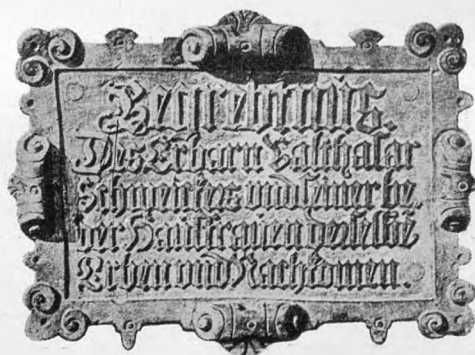 Begrebnus.
Des Erbarn Balthasar
Schmeickers und seiner be
der Hausfrauen derselbē
Erben und Nachkomen.